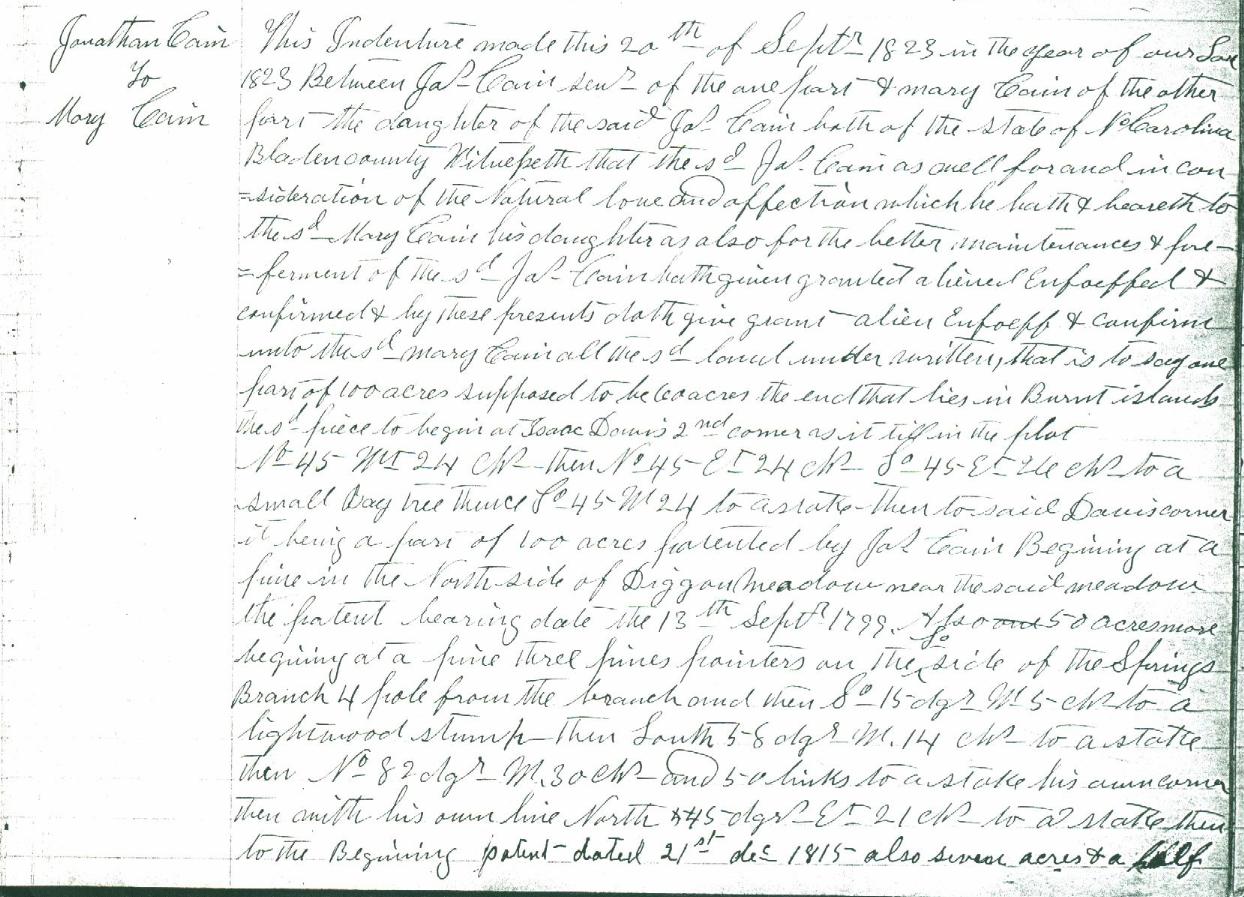 Jonathan Cain
To
Mary Cain
This Indenture made this 20th of Septr 1823 in the year of our
1823 Between Jas Cain senr of the one part & mary Cain of the other
part the daughter of the said Jas Cain both of the state of No Carolina
Bladen county Witnesseth that the sd Jas Cain as well for and in con
=sideration of the Natural love and affection which he hath & beareth to
the sd Mary Cain his daughter as also for the better maintenances & pre=
=ferment of the sd Jas Cain hath given granted aliened Enfoeffed &
confirmed & by these presents doth give grant alien Enfoeff & confirm
unto the sd mary Cain all the sd land under written, that is to say one
part of 100 acres supposed to be 60 acres the end that lies in Burnt islands
the sd piece to begin at Isaac Davis 2nd corner as it till in the plot
No 45 Wt 24 chs then No 45 Et 24 chs So 45 Et chs to a
small Bay tree thence So 45 W 24 to a stake then to said Davis corner
it being a part of 100 acres patented by Jas Cain Begining at a
pine in the North side of meadow near the said meadow
the patent bearing date the 13th Septr 1799. Also and 50 acres more
begining at a pine three pines pointers on the So side of the Springs
Branch 4 pole from the branch and then So 15 dgr W 5 chs to a
lightwood stump then South 58 dgr W. 14 chs to a stake
then No 82 dgr W. 30 chs and 50 links to a stake his own corner
then with his own line North 45 dgr Et 21 chs to a stake then
to the Begining patent dated 21st dec 1815 also seven acres & a half